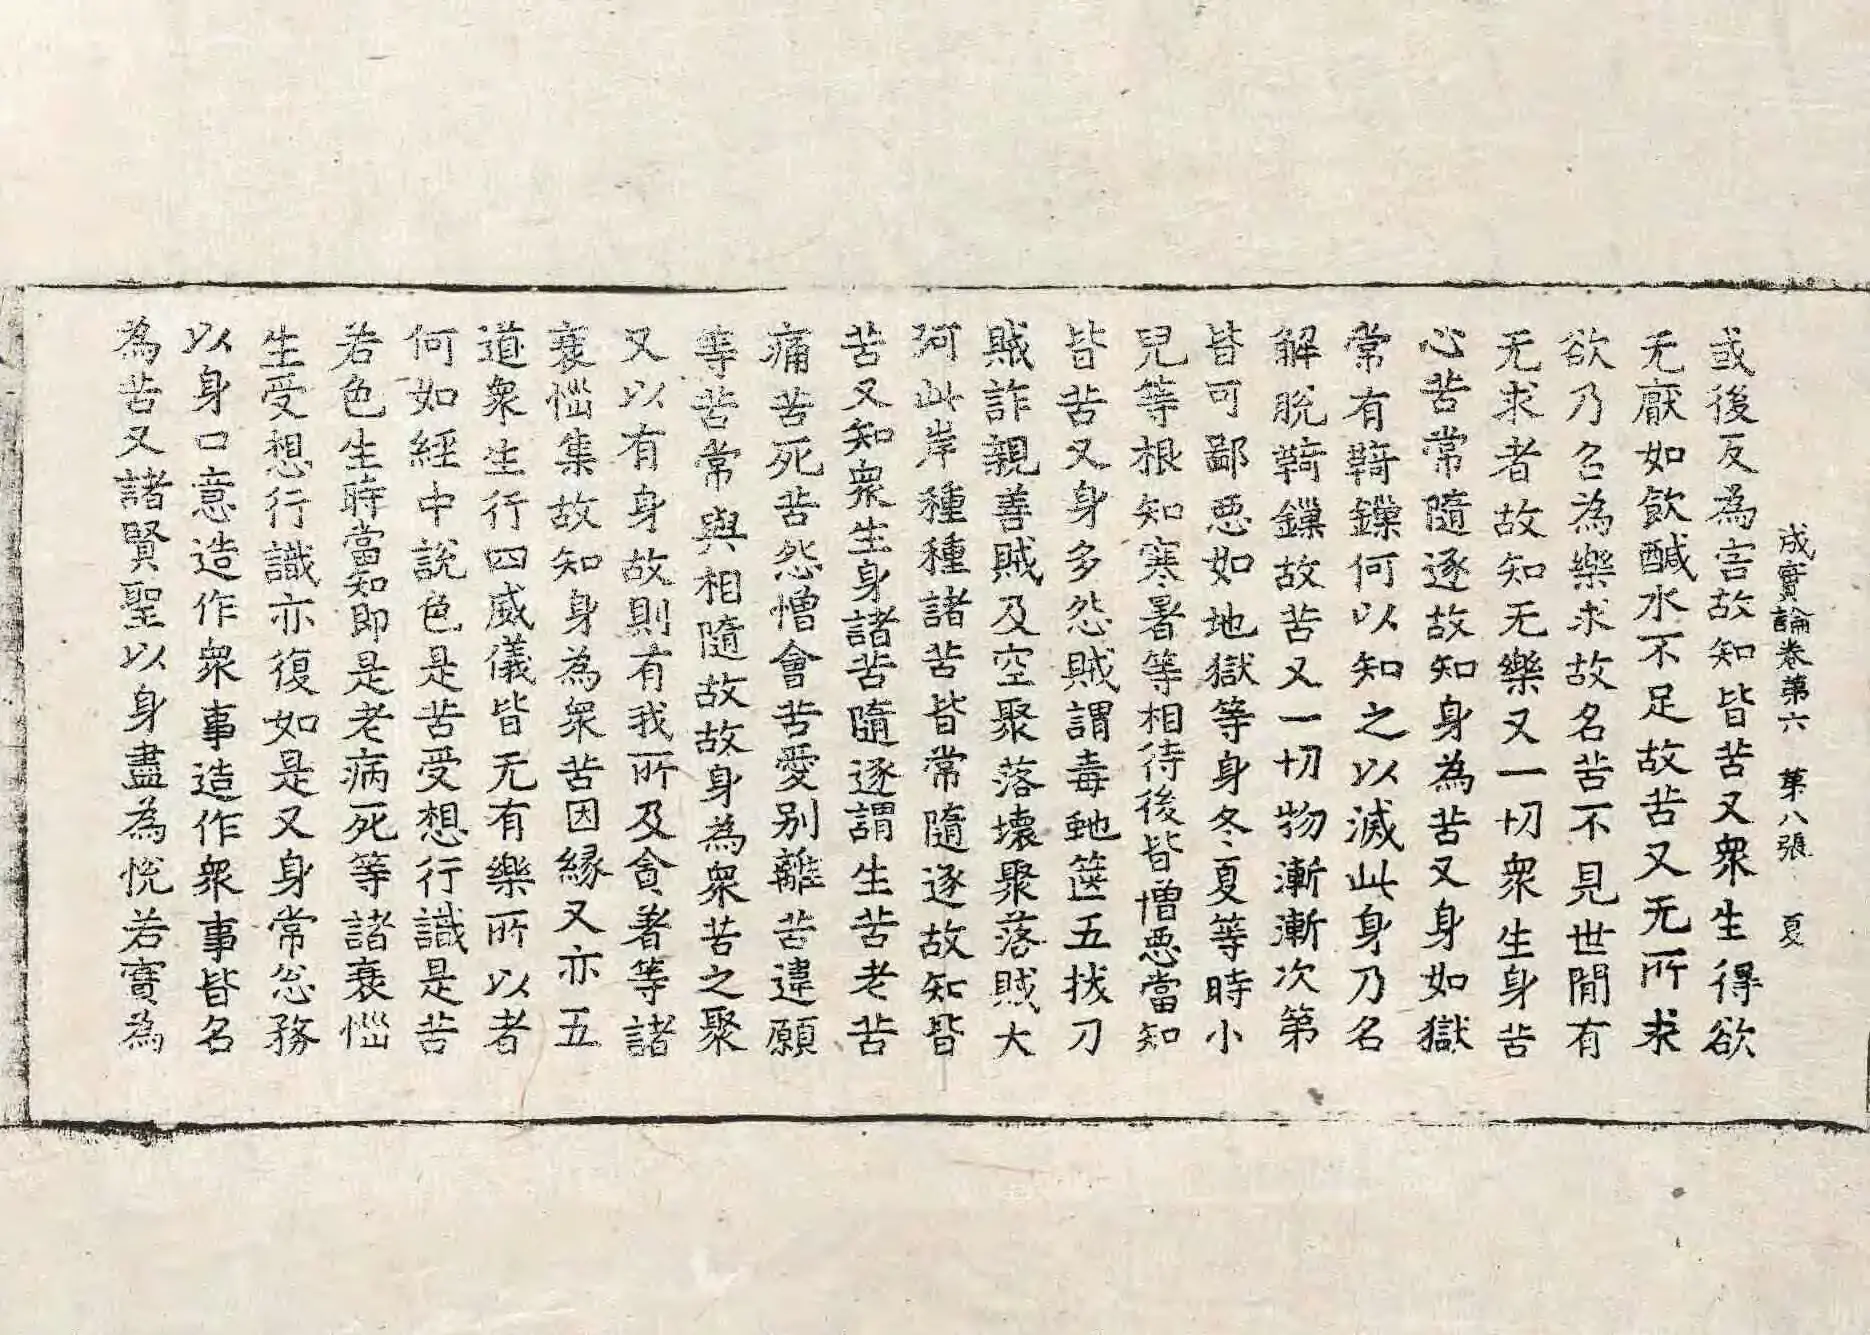 成實論卷第六 第八張 夏
或後反為害故知皆苦又衆生得欲
无猒如飲鹹水不足故苦又无所求
欲乃名為樂求故名苦不見世間有
无求者故知无樂又一切衆生身苦
心苦常隨逐故知身為苦又身如獄
常有䩭鏁何以知之以滅此身乃名
解脫䩭鏁故苦又一切物漸漸次第
皆可鄙惡如地獄等身冬夏等時小
兒等根知寒暑等相待後皆憎惡當知
皆苦又身多怨賊謂毒虵篋五拔刀
賊詐親善賊及空聚落壞聚落賊大
河此岸種種諸苦皆常隨逐故知皆
苦又知衆生身諸苦隨逐謂生苦老苦
痛苦死苦怨憎會苦愛別離苦違願
等苦常與相隨故故身為衆苦之聚
又以有身故則有我所及貪著等諸
衰惱集故知身為衆苦因緣又亦五
道衆生行四威儀皆无有樂所以者
何如經中說色是苦受想行識是苦
若色生時當知即是老病死等諸衰惱
生受想行識亦復如是又身常忩務
以身口意造作衆事造作衆事皆名
為苦又諸賢聖以身盡為悅若實為